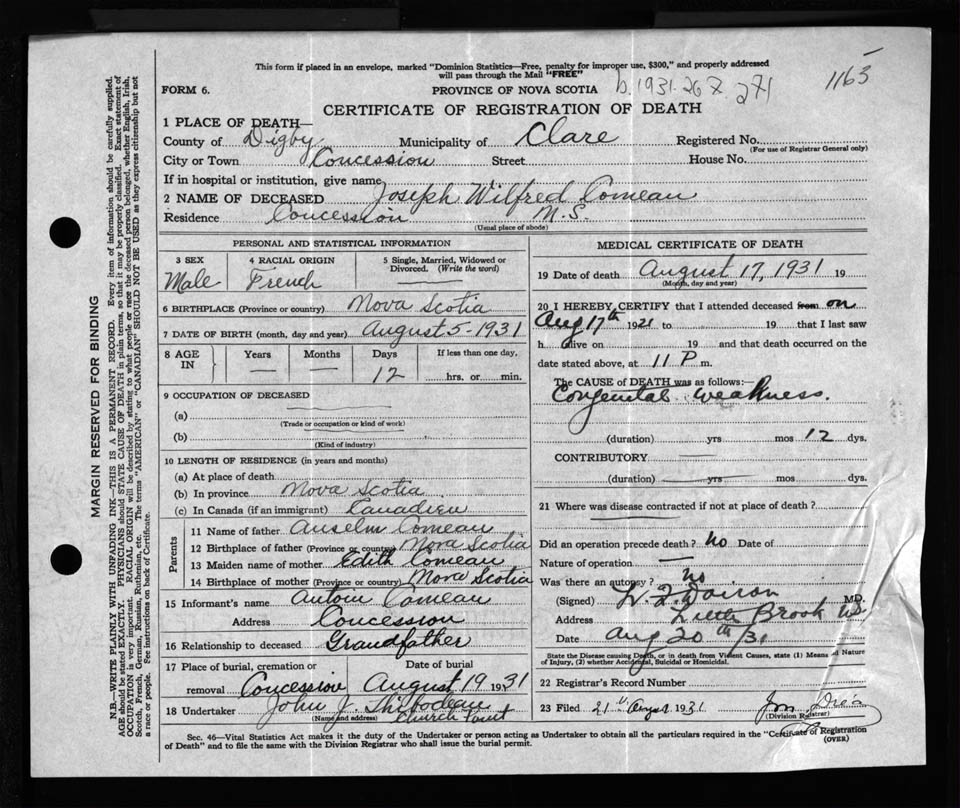 This form if placed in an envelope, marked "Dominion Statistics—Free, penalty for improper use, $300," and properly addressed
will pass through the Mail "FREE"
1163
FORM 6.
PROVINCE OF NOVA SCOTIA
b.1931.267.271
CERTIFICATE OF REGISTRATION OF DEATH
1 PLACE OF DEATH—
County of Digby Municipality of Clare Registered No.
(For use of Registrar General only)
City or Town Concession Street House No.
If in hospital or institution, give name
2 NAME OF DECEASED Joseph Wilfred Comeau
Residence Concession N.S.
(Usual place of abode)
PERSONAL AND STATISTICAL INFORMATION
3 SEX
Male
4 RACIAL ORIGIN
French
5 Single, Married, Widowed or
Divorced. (Write the word)
6 BIRTHPLACE (Province or country) Nova Scotia
7 DATE OF BIRTH (month, day and year) August 5-1931
8 AGE IN
Years —
Months —
Days 12
If less than one day,
hrs. or min.
9 OCCUPATION OF DECEASED
(a)
(Trade or occupation or kind of work)
(b)
(Kind of industry)
10 LENGTH OF RESIDENCE (in years and months)
(a) At place of death
(b) In province Nova Scotia
(c) In Canada (if an immigrant) Canadien
Parents
11 Name of father Anselm Comeau
12 Birthplace of father (Province or country) Nova Scotia
13 Maiden name of mother Edith Comeau
14 Birthplace of mother (Province or country) Nova Scotia
15 Informant's name Comeau
Address Concession
16 Relationship to deceased Grandfather
17 Place of burial, cremation or
removal Concession
Date of burial
August 19 1931
18 Undertaker John J. Thibodeau
(Name and address) Church Point
MEDICAL CERTIFICATE OF DEATH
19 Date of death August 17, 1931 19
(Month, day and year)
20 I HEREBY CERTIFY that I attended deceased from on
Aug 17th 1931 to 19 that I last saw
h alive on 19 and that death occurred on the
date stated above, at 11 P m.
The CAUSE of DEATH was as follows:—
Congenital weakness.
(duration) yrs mos 12 dys.
CONTRIBUTORY
(duration) yrs mos dys.
21 Where was disease contracted if not at place of death?
Did an operation precede death? No Date of
Nature of operation —
Was there an autopsy? No
(Signed) MD.
Address Little Brook NS
Date Aug 20th/31
State the Disease causing Death, or in death from Violent Causes, state (1) Means and Nature
of Injury, (2) whether Accidental, Suicidal or Homicidal.
22 Registrar's Record Number
23 Filed 21 1931
(Division Registrar)
Sec. 46—Vital Statistics Act makes it the duty of the Undertaker or person acting as Undertaker to obtain all the particulars required in the "Certificate of Registration
of Death" and to file the same with the Division Registrar who shall issue the burial permit.
(OVER)
MARGIN RESERVED FOR BINDING
N.B.—WRITE PLAINLY WITH UNFADING INK—THIS IS A PERMANENT RECORD. Every item of information should be carefully supplied.
AGE should be stated EXACTLY. PHYSICIANS should STATE CAUSE OF DEATH in plain terms, so that it may be properly classified. Exact statement of
OCCUPATION is very important. RACIAL ORIGIN will be described by stating to what people or race the deceased person belonged, whether English, Irish,
Scotch, French, German, Russian, Ruthenian, etc. The terms "AMERICAN" or "CANADIAN" SHOULD NOT BE USED as they express citizenship but not
a race or people. Fee instructions on back of Certificate.